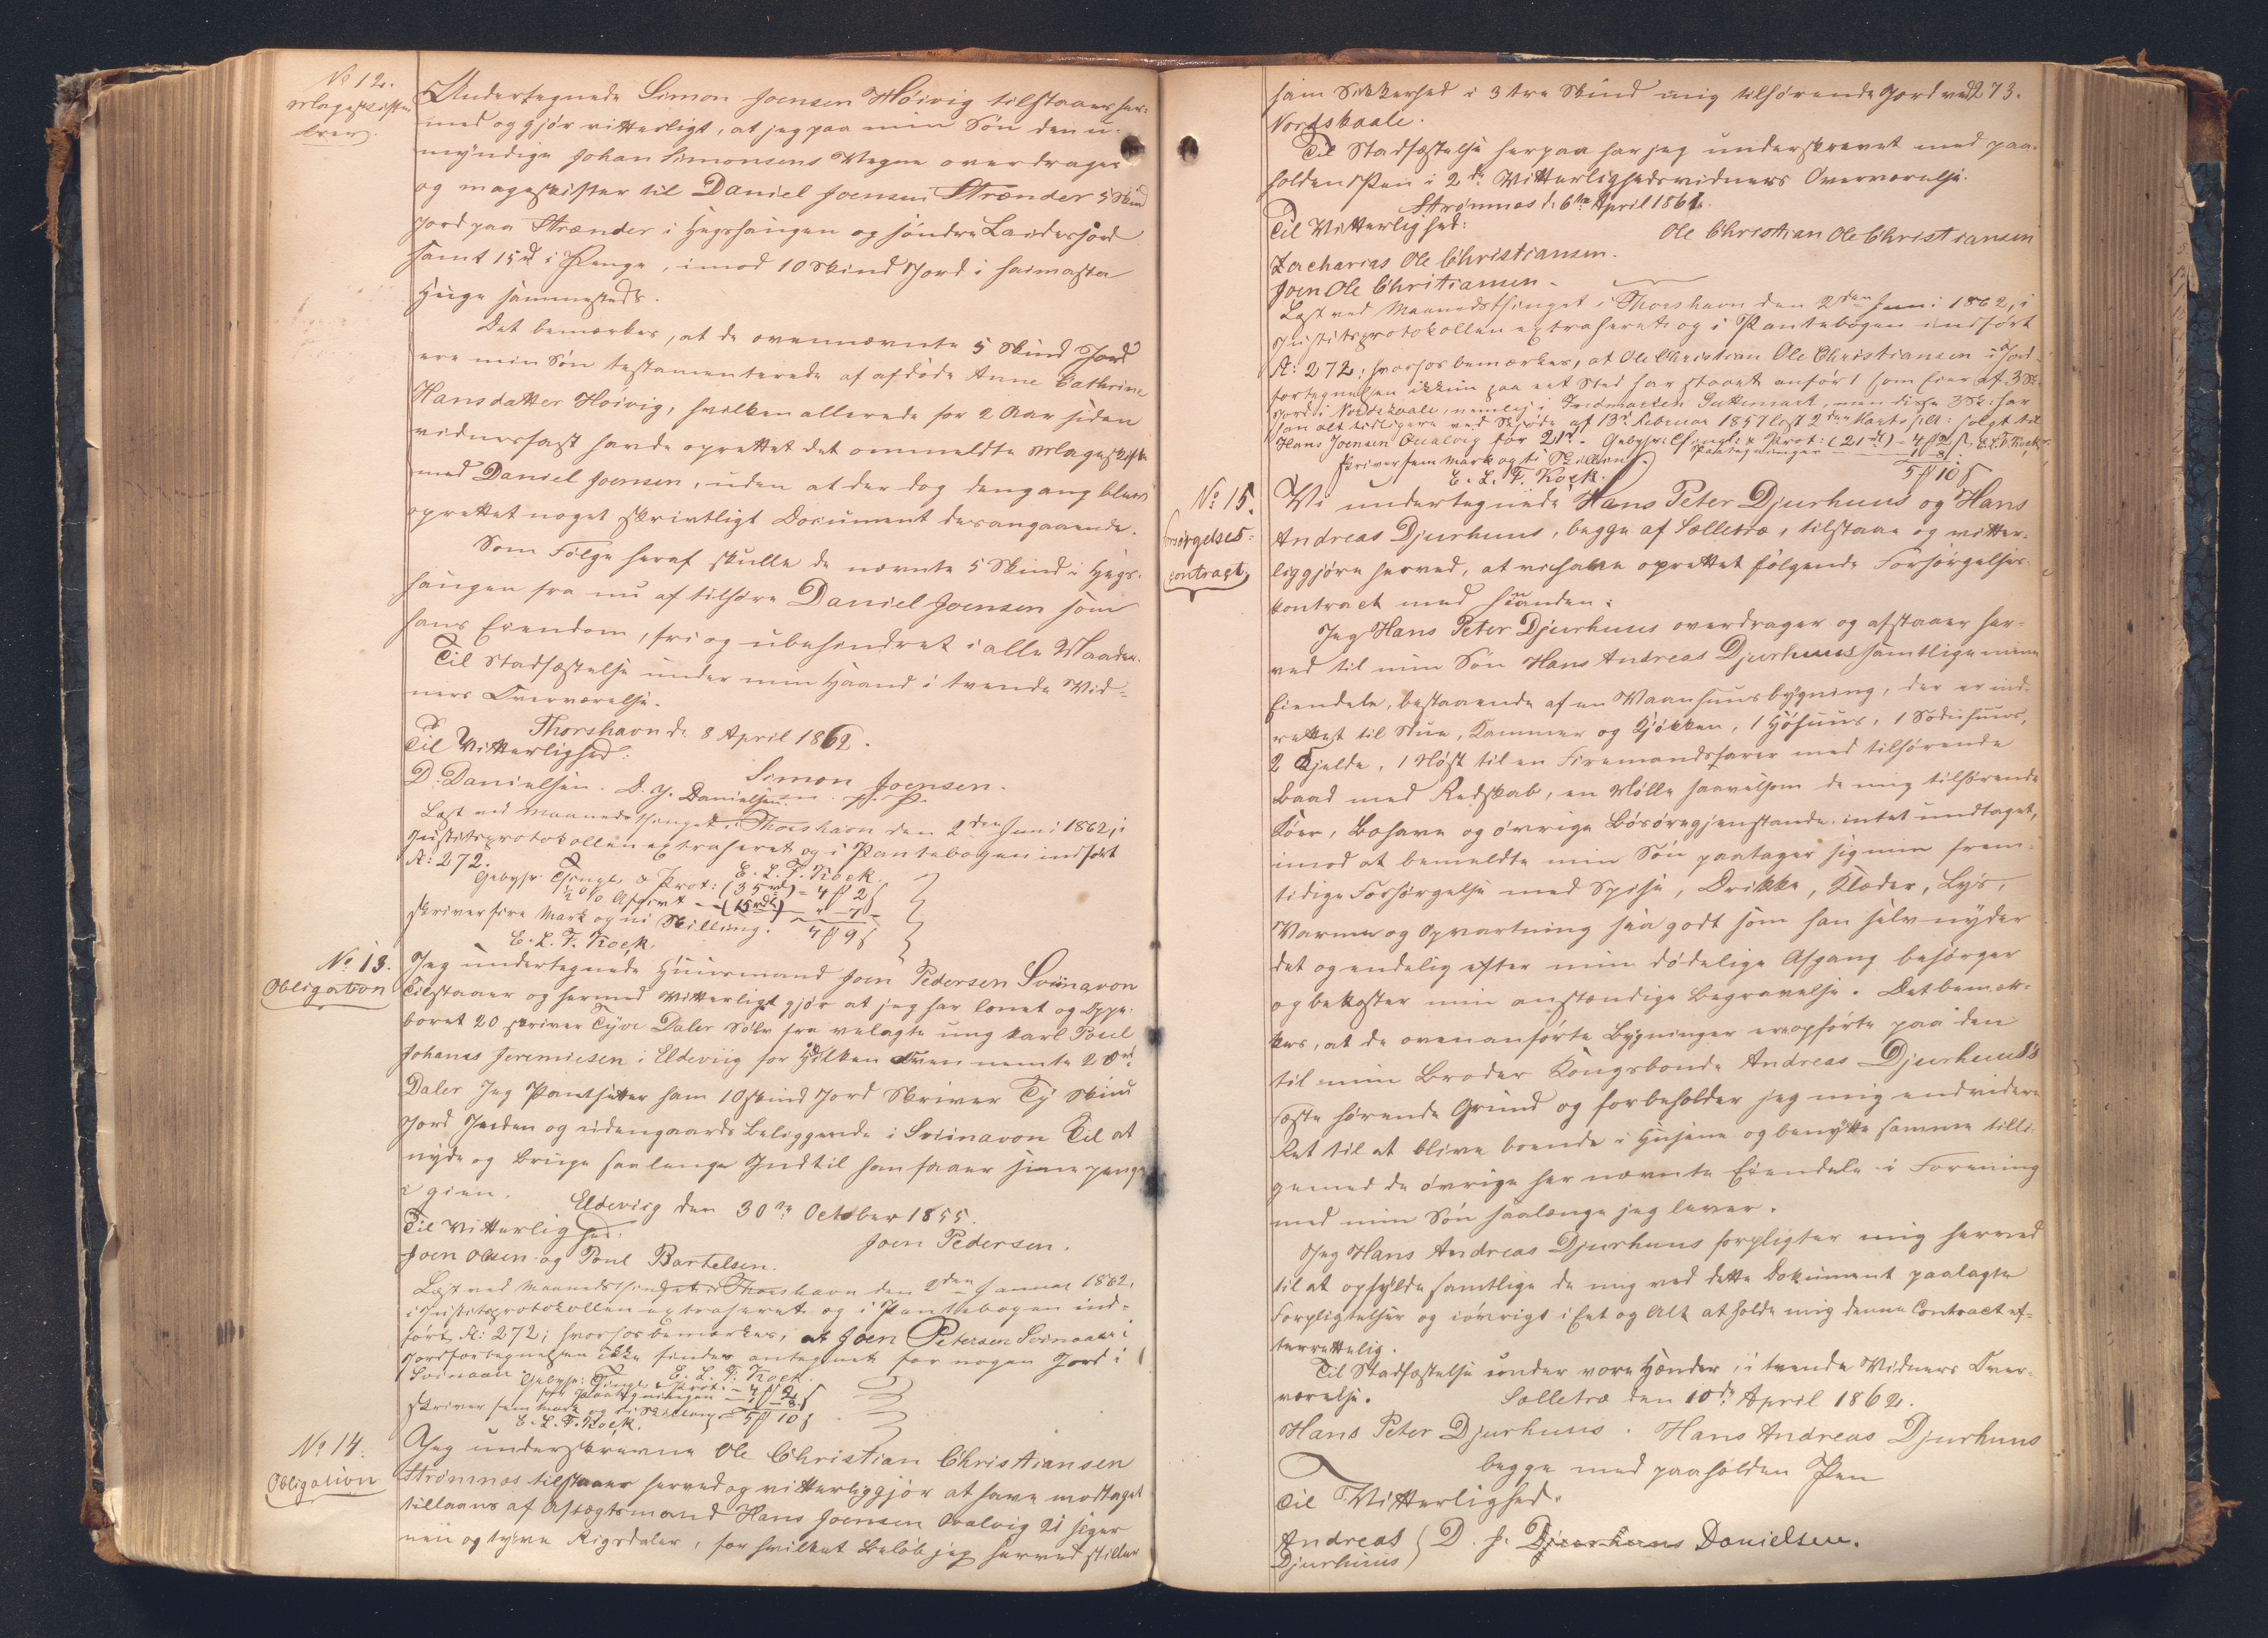 No 12.
Mageskifte
brev.
Undertegnede Simon Joensen Høivig tilstaaer her-
med og gjør vitterligt, at jeg paa min Søn den u-
myndige Johan Simonsens Vegne overdrager
og mageskifter til Daniel Joensen Strænder 5 Skind
Jord paa Strænder i Hegshaugen og søndre
samt 15 rd i Penge, imod 10 Skind Jord i
Huge sammesteds.
Det bemærkes, at de ovennævnte 5 Skind Jord
ere min Søn testamenterede af afdøde Anne Cathrine
Hansdatter Høivig, hvilken allerede for 2 Aar siden
vidnesfast havde oprettet det ommeldte Mageskifte
med Daniel Joensen, uden at der dog dengang blev
oprettet noget skrivtligt Document desangaaende.
Som Følge heraf skulle de nævnte 5 Skind i Hegs-
haugen fra nu af tilhøre Daniel Joensen som
hans Eiendom, fri og ubehindret i alle Maader.
Til Stadfæstelse under min Haand i tvende Vid-
ners Overværelse.
Thorshavn d. 8 April 1862.
Til Vitterlighed:
Simon Joensen.
D. Danielsen. D. J. Danielsen. m. p. P.
Læst ved Maanedsthinget i Thorshavn den 2den Juni 1862, i
Justitsprotokollen extraheret og i Pantebogen indført
A: 272.
E. L. T. Kock.
Gebyhr: Thingl. & Prot: (35 rd) = 4 ß 2 s
½ % Afgivt - (15 rd) - " - 7 -
skriver fire Mark og ni Skilling. 4 ß 9 s
E. L. T. Kock.
No 13.
Obligation
Jeg undertegnede Huusmand Joen Pedersen Sviinavon
Tilstaaer og hermed Vitterligt gjør at jeg har lonet og Oppe-
boret 20 skriver Tyve Daler Sølv fra velagte ung karl Poul
Johanes Jeremiesen i Eldeviig for Hvilken Ovennemte 20 rd
Daler Jeg Pantsetter ham 10 skind Jord Skriver Ty Skind
Jord Inden og udengaards Beliggende i Sviinavon Til at
nyde og bruge saa lenge Indtil han faaer sine penge
i gien.
Eldeviig den 30te October 1855.
Til Vitterlighed:
Joen Pedersen.
Joen Olsen og Poul Bartelsen.
Læst ved Maanedsthinget i Thorshavn den 2den Januar 1862,
i Justitsprotokollen extraheret og i Pantebogen ind-
ført A: 272; hvorhos bemærkes, at Joen Petersen Svinaaer i
Jordfortegnelsen ikke findes antegnet for nogen Jord i
Svinaaer.
E. L. T. Kock.
Gebyhr: Tingl. & Prot: - 4 ß 2 s
for Paategningen - 1 - 8 s
skriver fem Mark og ti Skilling = 5 ß 10 s
E. L. T. Kock.
No 14.
Obligation
Jeg underskrevne Ole Christian Christiansen
Strømnæs tilstaaer herved og vitterliggjør at have modtaget
tillaans af Aftægtsmand Hans Joensen Qvalvig 21 siger
een og tyve Rigsdaler, for hvilket Beløb jeg herved stiller
273.
ham Sikkerhed i 3 tre Skind mig tilhørende Jord ved
Nordskaale.
Til Stadfæstelse herpaa har jeg underskrevet med paa-
holden Pen i 2de Vitterlighedsvidners Overværelse.
Strømnæs d. 6te April 1861.
Til Vitterlighed:
Ole Christian Ole Christiansen
Zacharias Ole Christiansen.
Joen Ole Chritiansen.
Læst ved Maanedsthinget i Thorshavn den 2den Juni 1862, i
Justitsprotokollen extraheret og i Pantebogen indført
A: 272; hvorhos bemærkes, at Ole Christian Ole Christiansen i Jord-
fortegnelsen ikkun paa eet Sted har staaet anført som Eier af 3 Sk.
Jord i Nordskaale, nemlig i Indmarken Guttemark, men disse 3 Sk: har
han alt tidligere ved Skjøde af 13de Februar 1857 læst 2den Marts s. A. solgt til
Hans Joensen Qvalvig for 21 rd. Gebyhr: Thingl. & Prot: (21 rd) - 4 ß 2 s. E. L. T. Kock.
Paategningen 1 - 8 s.
skriver fem Mark og ti Skilling. 5 ß 10 s
E. L. T. Kock.
No 15.
Forsørgelses-
contract
Vi undertegnede Hans Peter Djurhuus og Hans
Andreas Djurhuus, begge af Selletræ, tilstaae og vitter-
liggjøre herved, at vi have oprettet følgende Forsørgelses-
kontract med hinanden:
Jeg Hans Peter Djurhuus overdrager og afstaaer her-
ved til min Søn Hans Andreas Djurhuus samtlige mine
Eiendele, bestaaende af en Vaanhuusbygning, der er ind-
rettet til Stue, Kammer og Kjøkken, 1 Høhuus, 1 Sodnhuus,
2 Hjelde, 1 Nøst til en Firemandsfarer med tilhørende
Baad med Redskab, en Mølle saavelsom de mig tilhørende
Køer, Bohave og øvrige Løsøregjenstande intet undtaget,
imod at bemeldte min Søn paatager sig min frem-
tidige Forsørgelse med Spise, Drikke, Klæder, Lys,
Varme og Opvartning saa godt som han selv nyder
det og endelig efter min dødelige Afgang besørger
og bekoster min anstændige Begravelse. Det bemær-
kes, at de ovenanførte Bygninger ere opførte paa den
til min Broder Kongsbonde Andreas Djurhuus's
Fæste hørende Grund og forbeholder jeg mig endvidere
Ret til at blive boende i Husene og benytte samme tilli-
gemed de øvrige her nævnte Eiendele i Forening
med min Søn saalænge jeg lever.
Jeg Hans Andreas Djurhuus forpligter mig herved
til at opfylde samtlige de mig ved dette Dokument paalagte
Forpligtelser og iøvrigt i Eet og Alt at holde mig denne Contract ef-
terrettelig.
Til Stadfæstelse under vore Hænder i tvende Vidners Over-
værelse.
Selletræ den 10de April 1862.
Hans Peter Djurhuus. Hans Andreas Djurhuus
begge med paaholden Pen
Til Vitterlighed.
Andreas Djurhuus
D. J. Djurhuus Danielsen.